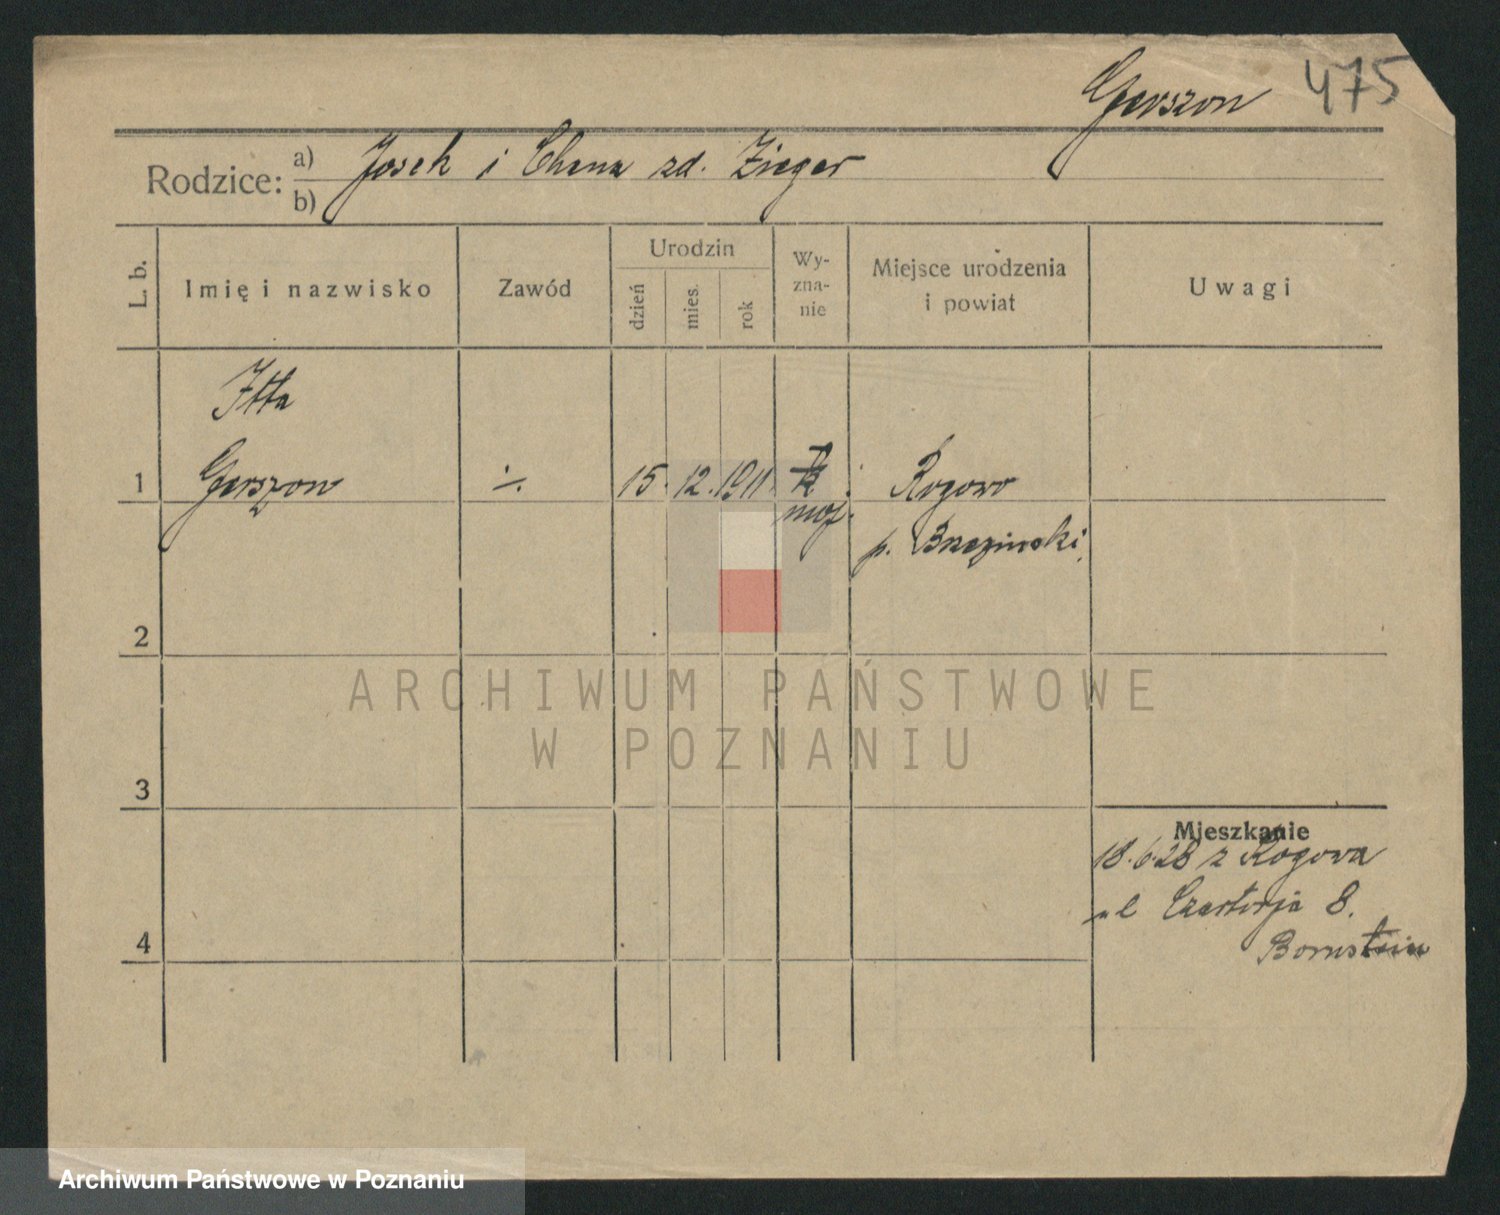 Gerszon 475
Rodzice: a) Josek i Chana zd. Zieger
b)
L. b. Imię i nazwisko Zawód Urodzin dzień mies. rok Wyznanie Miejsce urodzenia i powiat Uwagi
Itta
1 Gerszon ·/. 15. 12. 1911. Rogowo
moj.
p. Brzeziński
2
ARCHIWUM PAŃSTWOWE
W POZNANIU
3
Mieszkanie
18.6.28 z Rogowa
ul Czartorja 8.
4 Bornstein
Archiwum Państwowe w Poznaniu